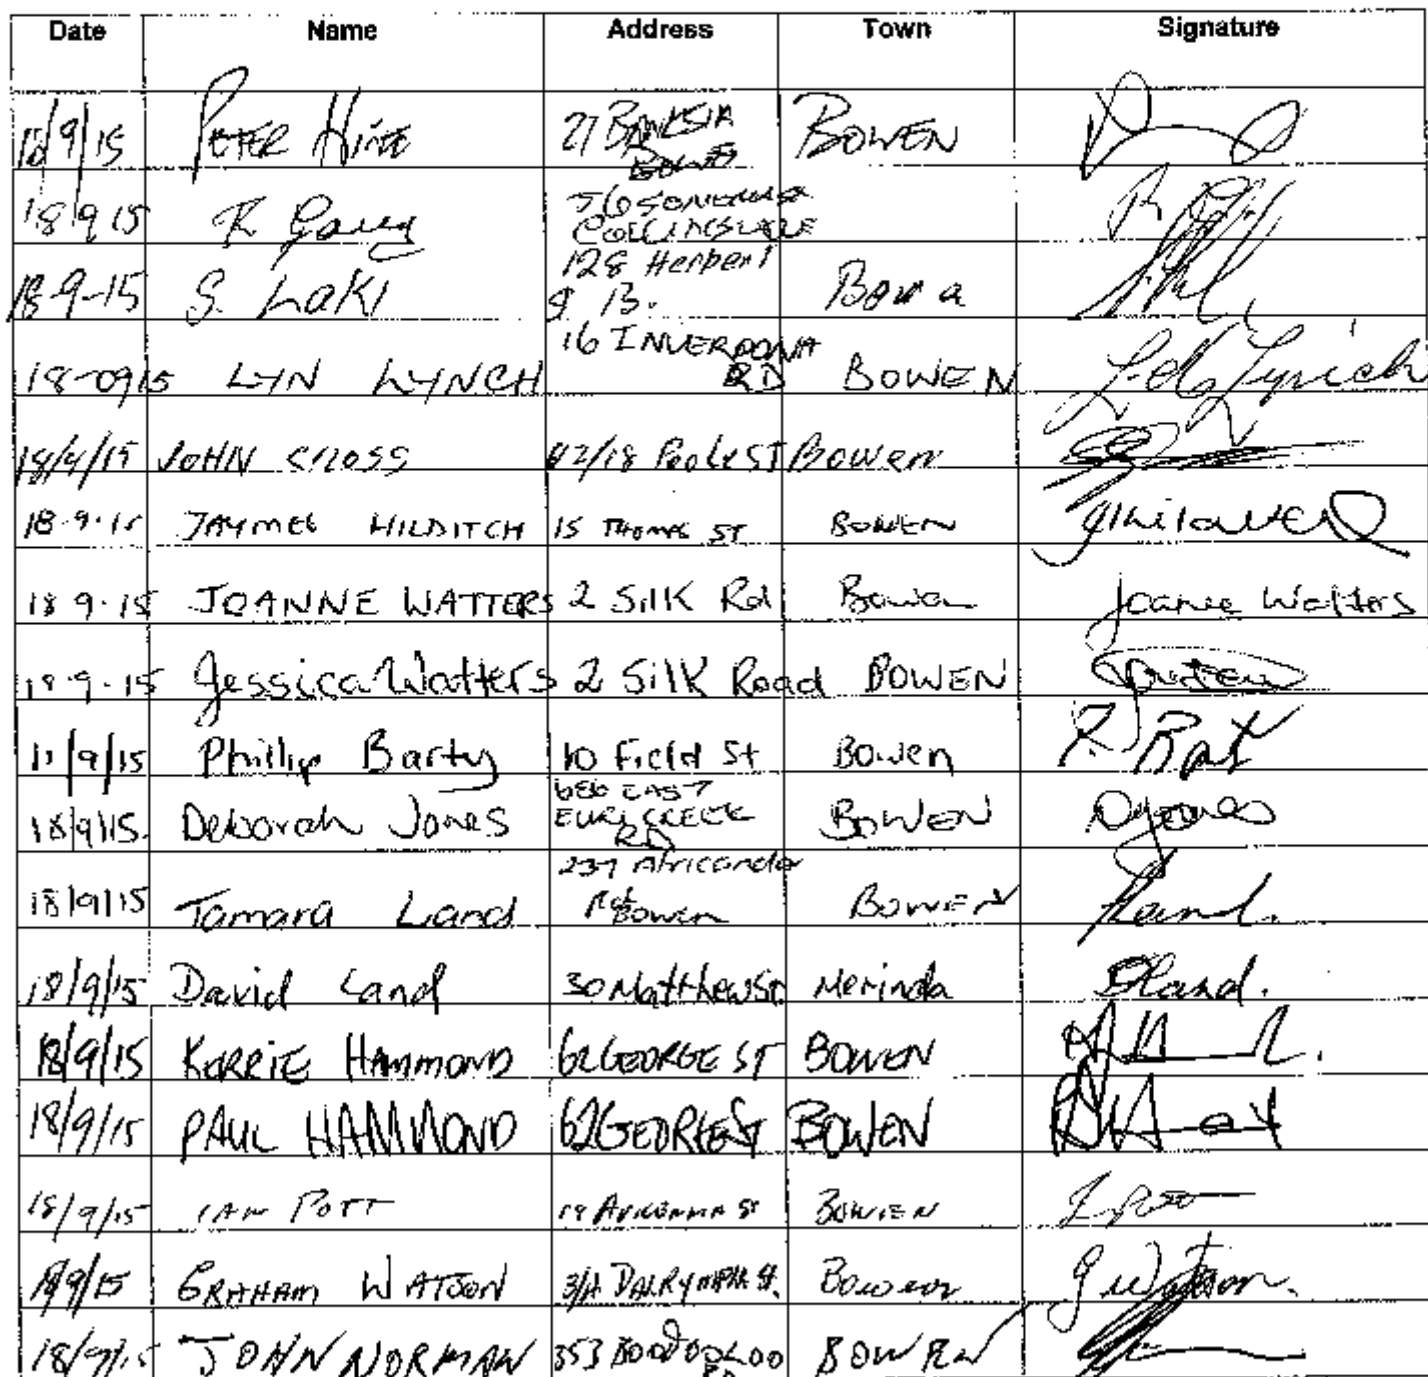 Date Name Address Town Signature
18/9/15 PETER HINE 27 BANKSIA BOWEN
18/9/15 R 56 COLLINSVILLE
18-9-15 S. LAKI 128 Herbert
16 INVERDONA
18-09-15 LYN LYNCH RD BOWEN L. Lynch
JOHN CROSS Poole ST Bowen
18.9.15 JAYMEE HILDITCH 15 THOMAS ST BOWEN
18.9.15 JOANNE WATTERS 2 Silk Rd Bowen Joanne Watters
18.9.15 Jessica Watters 2 Silk Road BOWEN
9/15 Phillip Barty 10 Field St Bowen
EAST
18/9/15. Deborah Jones EURI CREEK BOWEN DJones
RD
237 Africander
18/9/15 Tamara Land Rd Bowen BOWEN Land.
18/9/15 David Land 30 Matthew St Merinda DLand.
18/9/15 KERRIE HAMMOND 62 GEORGE ST BOWEN
18/9/15 PAUL HAMMOND 62 GEORGE ST BOWEN
18/9/15 IAN POTT ST BOWEN
18/9/15 GRAHAM WATSON DALRYMPLE ST. Bowen G Watson.
18/9/15 JOHN NORMAN 353 BOWEN
RD